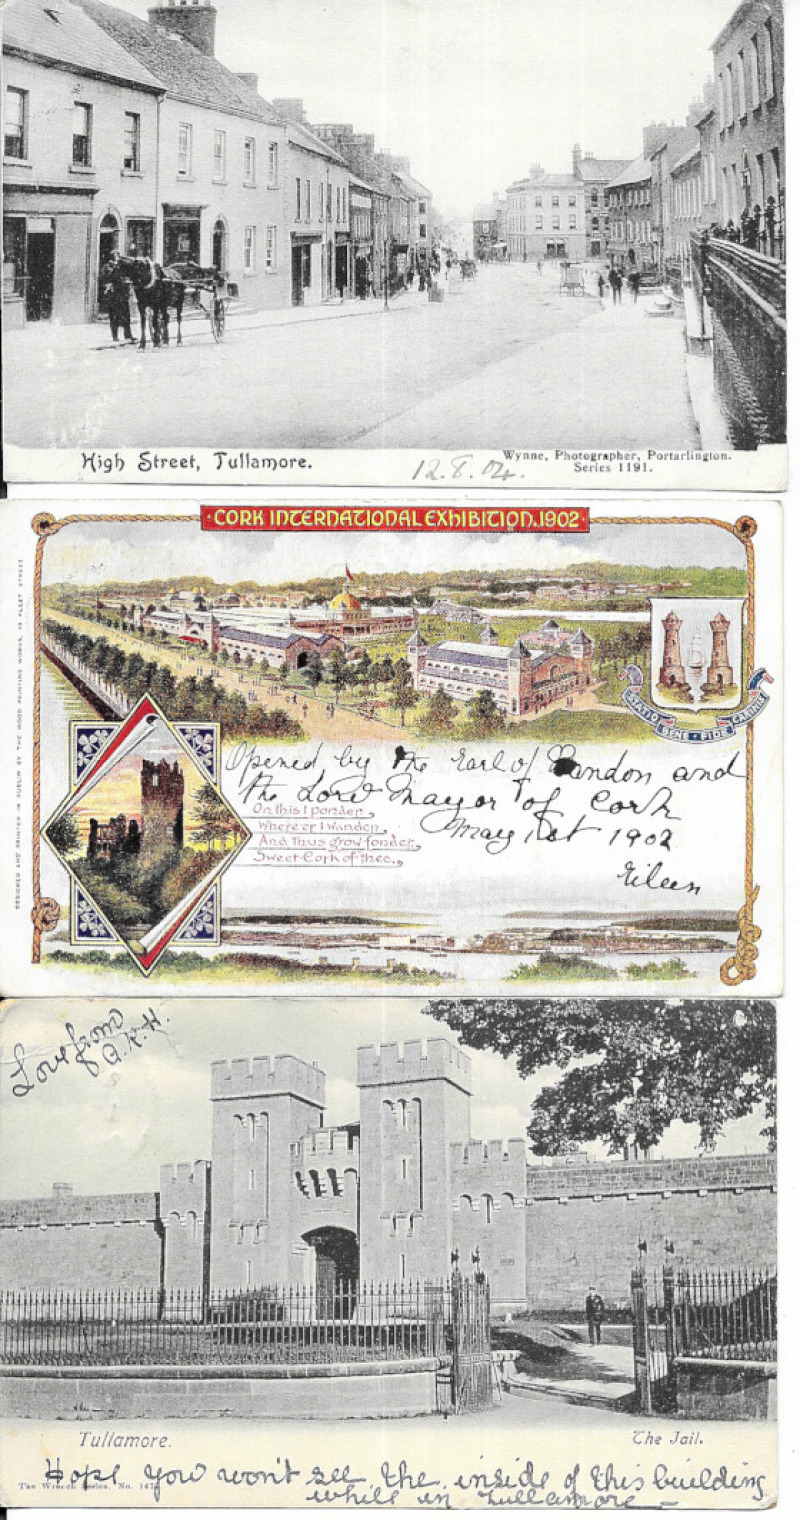 High Street, Tullamore.
12.8.04.
Wynne, Photographer, Portarlington.
Series 1191.
· CORK INTERNATIONAL EXHIBITION. 1902 ·
DESIGNED AND PRINTED IN DUBLIN BY THE WOOD PRINTING WORKS, 13 FLEET STREET.
STATIO BENE FIDE CARINIS
Opened by the Earl of London and
the Lord Mayor of Cork
May 1st 1902
Eileen
On this I ponder,
Where'er I wander,
And thus grow fonder,
Sweet Cork of thee.
Love from
A.K.H.
Tullamore.
The Jail.
Hope you won't see the inside of this building
while in Tullamore —
The Wrench Series, No.